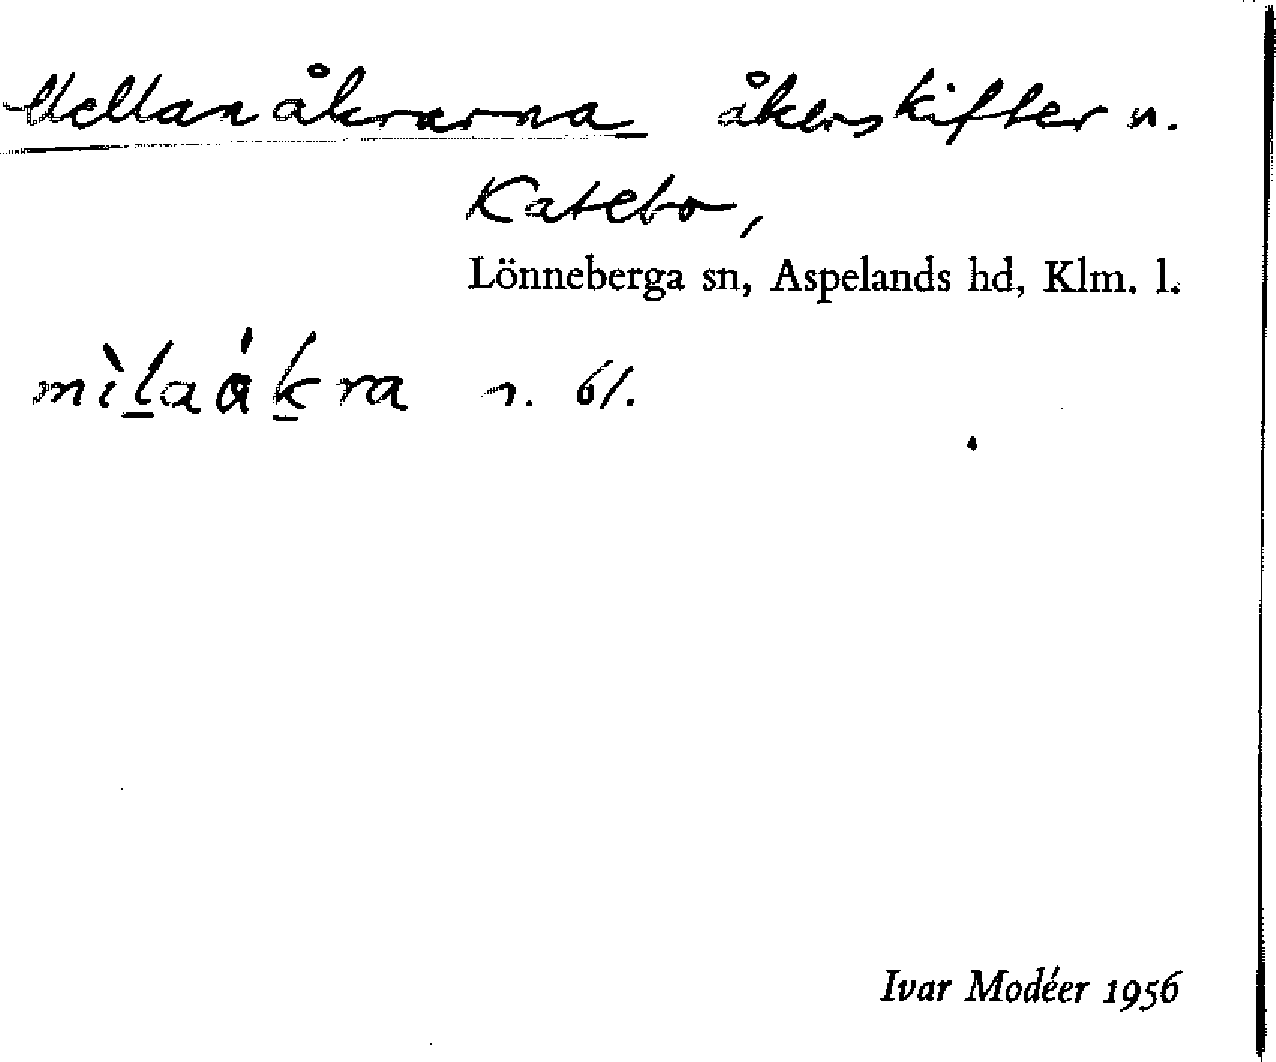 Mellanåkrarna åkerskifter n.
Katebo,
Lönneberga sn, Aspelands hd, Klm. l.
mìḻaåḵra n. 61.
Ivar Modéer 1956